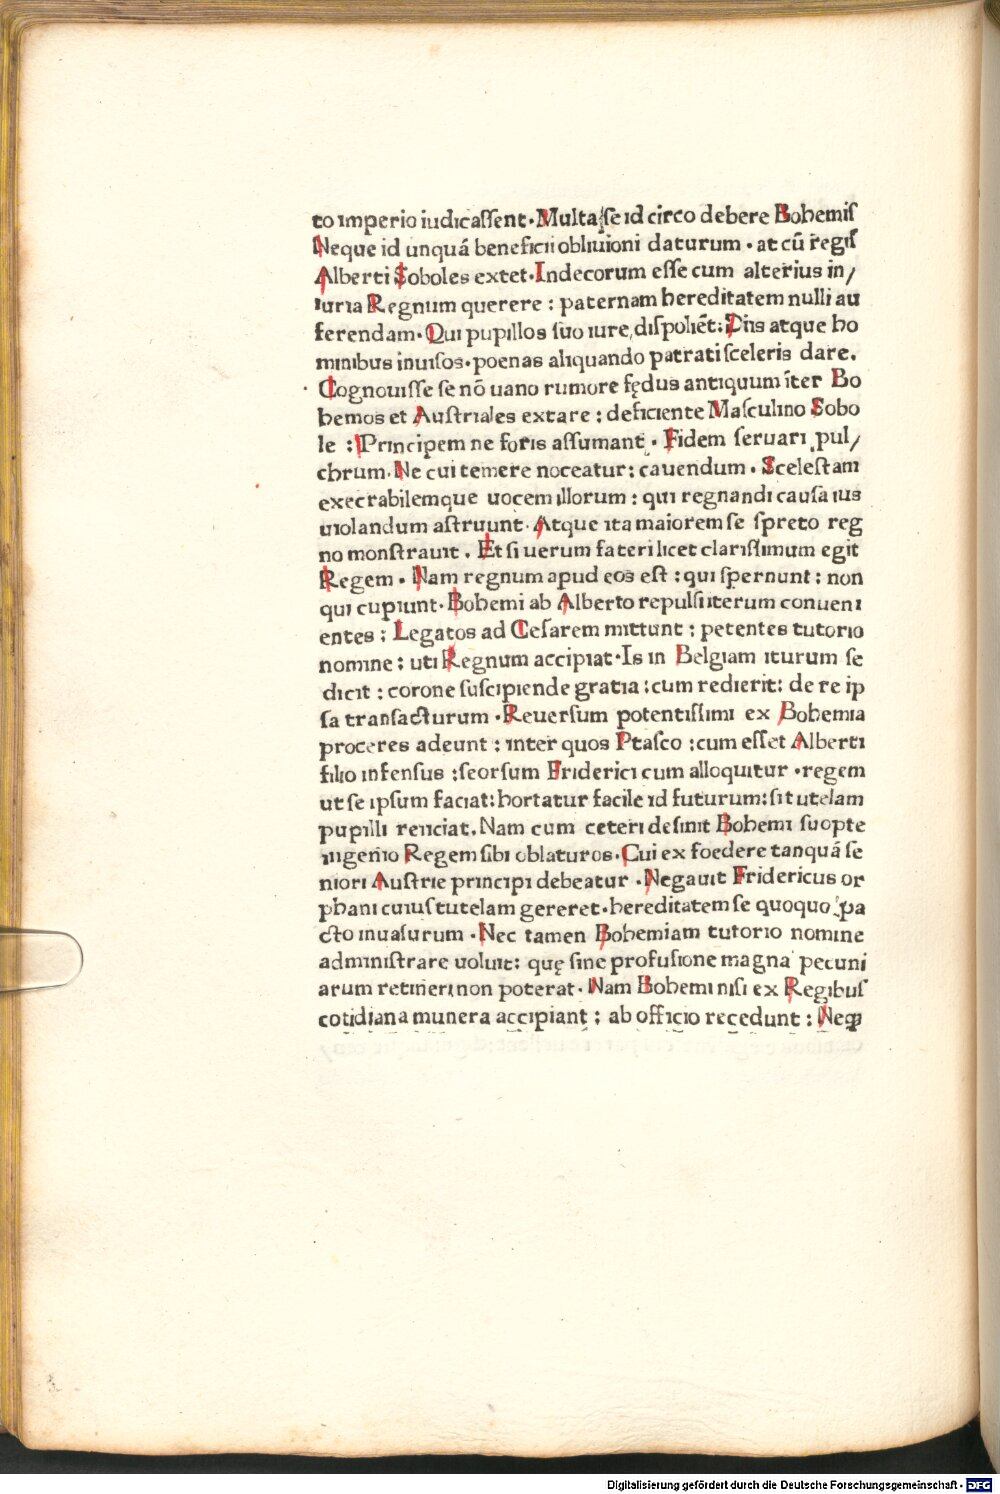 to imperio iudicaſſent· Multa ſe id circo debere Bohemiſ
Neque id unquā beneficii obliuioni daturum · at cū regiſ
Alberti Soboles extet· Indecorum eſſe cum alterius in/
iuria Regnum querere : paternam hereditatem nulli au
ferendam· Qui pupillos ſuo iure diſpoliēt: Diis atque ho
minibus inuiſos· poenas aliquando patrati ſceleris dare.
Cognouiſſe ſe nō uano rumore fędus antiquum īter Bo
hemos et Auſtriales extare : deficiente Maſculino Sobo
le : Principem ne foris aſſumant · Fidem ſeruari pul/
chrum· Ne cui temere noceatur: cauendum · Sceleſtam
execrabilemque uocem illorum : qui regnandi cauſa ius
uiolandum aſtruunt· Atque ita maiorem ſe ſpreto reg
no monſtrauit . Et ſi uerum fateri licet clariſſimum egit
Regem · Nam regnum apud eos eſt : qui ſpernunt : non
qui cupiunt· Bohemi ab Alberto repulſi iterum conueni
entes : Legatos ad Ceſarem mittunt : petentes tutorio
nomine : uti Regnum accipiat· Is in Belgiam iturum ſe
dicit : corone ſuſcipiende gratia : cum redierit: de re ip
ſa tranſacturum · Reuerſum potentiſſimi ex Bohemia
proceres adeunt : inter quos Ptaſco : cum eſſet Alberti
filio infenſus : ſeorſum Friderici cum alloquitur · regem
ut ſe ipſum faciat: hortatur facile id futurum: ſi tutelam
pupilli reiiciat. Nam cum ceteri deſinit Bohemi ſuopte
ingenio Regem ſibi oblaturos· Cui ex foedere tanquā ſe
niori Auſtrie principi debeatur · Negauit Fridericus or
phani cuiuſ tutelam gereret· hereditatem ſe quoquo pa
cto inuaſurum · Nec tamen Bohemiam tutorio nomine
adminiſtrare uoluit: quę ſine profuſione magna pecuni
arum retineri non poterat· Nam Bohemi niſi ex Regibuſ
cotidiana munera accipiant : ab officio recedunt : Neqꝫ
Digitalisierung gefördert durch die Deutsche Forschungsgemeinschaft - DFG